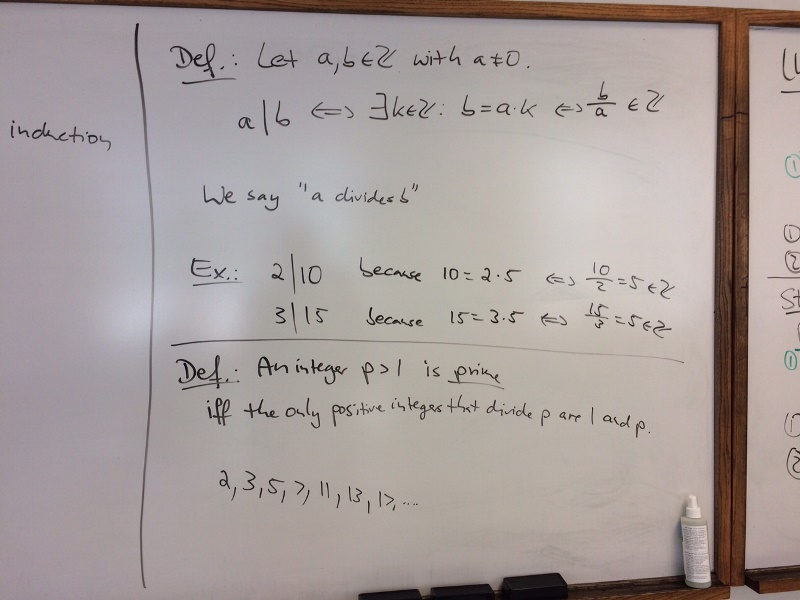 induction
Def.: Let a, b ∈ ℤ with a ≠ 0.
a | b ⟺ ∃k ∈ ℤ: b = a·k ⟺ b/a ∈ ℤ
We say "a divides b"
Ex.: 2 | 10 because 10 = 2·5 ⟺ 10/2 = 5 ∈ ℤ
3 | 15 because 15 = 3·5 ⟺ 15/3 = 5 ∈ ℤ
Def.: An integer p > 1 is prime
iff the only positive integers that divide p are 1 and p.
2, 3, 5, 7, 11, 13, 17, ....